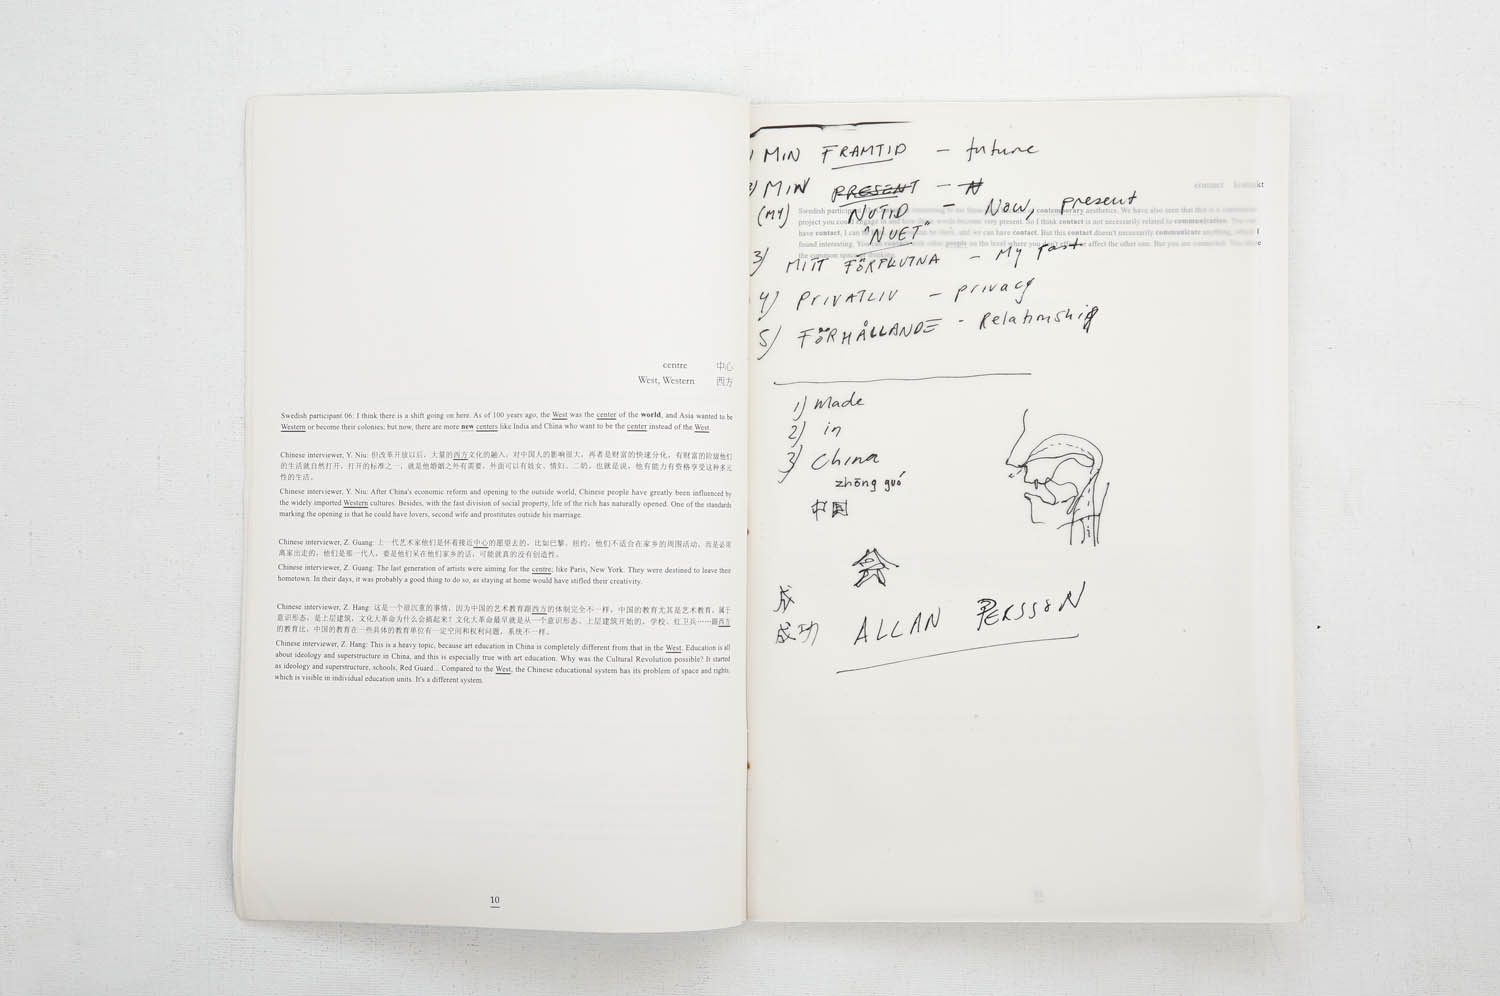 centre 中心
West, Western 西方
Swedish participant 06: I think there is a shift going on here. As of 100 years ago, the West was the center of the world, and Asia wanted to be
Western or become their colonies; but now, there are more new centers like India and China who want to be the center instead of the West.
Chinese interviewer, Y. Niu: 但改革开放以后，大量的西方文化的融入，对中国人的影响很大，再者是财富的快速分化，有财富的阶级他们
的生活就自然打开，打开的标准之一，就是他婚姻之外有需要，外面可以有妓女、情妇、二奶，也就是说，他有能力有资格享受这种多元
性的生活。
Chinese interviewer, Y. Niu: After China's economic reform and opening to the outside world, Chinese people have greatly been influenced by
the widely imported Western cultures. Besides, with the fast division of social property, life of the rich has naturally opened. One of the standards
marking the opening is that he could have lovers, second wife and prostitutes outside his marriage.
Chinese interviewer, Z. Guang: 上一代艺术家他们是怀着接近中心的愿望去的，比如巴黎、纽约，他们不适合在家乡的周围活动，而是必须
离家出走的，他们是那一代人，要是他们呆在他们家乡的话，可能就真的没有创造性。
Chinese interviewer, Z. Guang: The last generation of artists were aiming for the centre; like Paris, New York. They were destined to leave their
hometown. In their days, it was probably a good thing to do so, as staying at home would have stifled their creativity.
Chinese interviewer, Z. Hang: 这是一个很沉重的事情，因为中国的艺术教育跟西方的体制完全不一样，中国的教育尤其是艺术教育，属于
意识形态，是上层建筑，文化大革命为什么会搞起来？文化大革命最早就是从一个意识形态、上层建筑开始的，学校、红卫兵……跟西方
的教育比，中国的教育在一些具体的教育单位有一定空间和权利问题，系统不一样。
Chinese interviewer, Z. Hang: This is a heavy topic, because art education in China is completely different from that in the West. Education is all
about ideology and superstructure in China, and this is especially true with art education. Why was the Cultural Revolution possible? It started
as ideology and superstructure, schools, Red Guard... Compared to the West, the Chinese educational system has its problem of space and rights,
which is visible in individual education units. It's a different system.
10
1) MIN FRAMTID – future
2) MIN PRESENT – N
(MY) NUTID – Now, present
"NUET"
3) MITT FÖRFLUTNA – My past
4) PRIVATLIV – privacy
5) FÖRHÅLLANDE - Relationship
contact kontakt
Swedish participant contemporary aesthetics. We have also seen that
project you could very present. So I think contact is not necessarily related to communication.
have contact, I can and we can have contact. But this contact doesn't necessarily communicate
found interesting. people on the level where you don't affect the other one.
the common space
1) Made
2) in
3) China
zhōng guó
中国
成
成功
ALLAN PERSSON